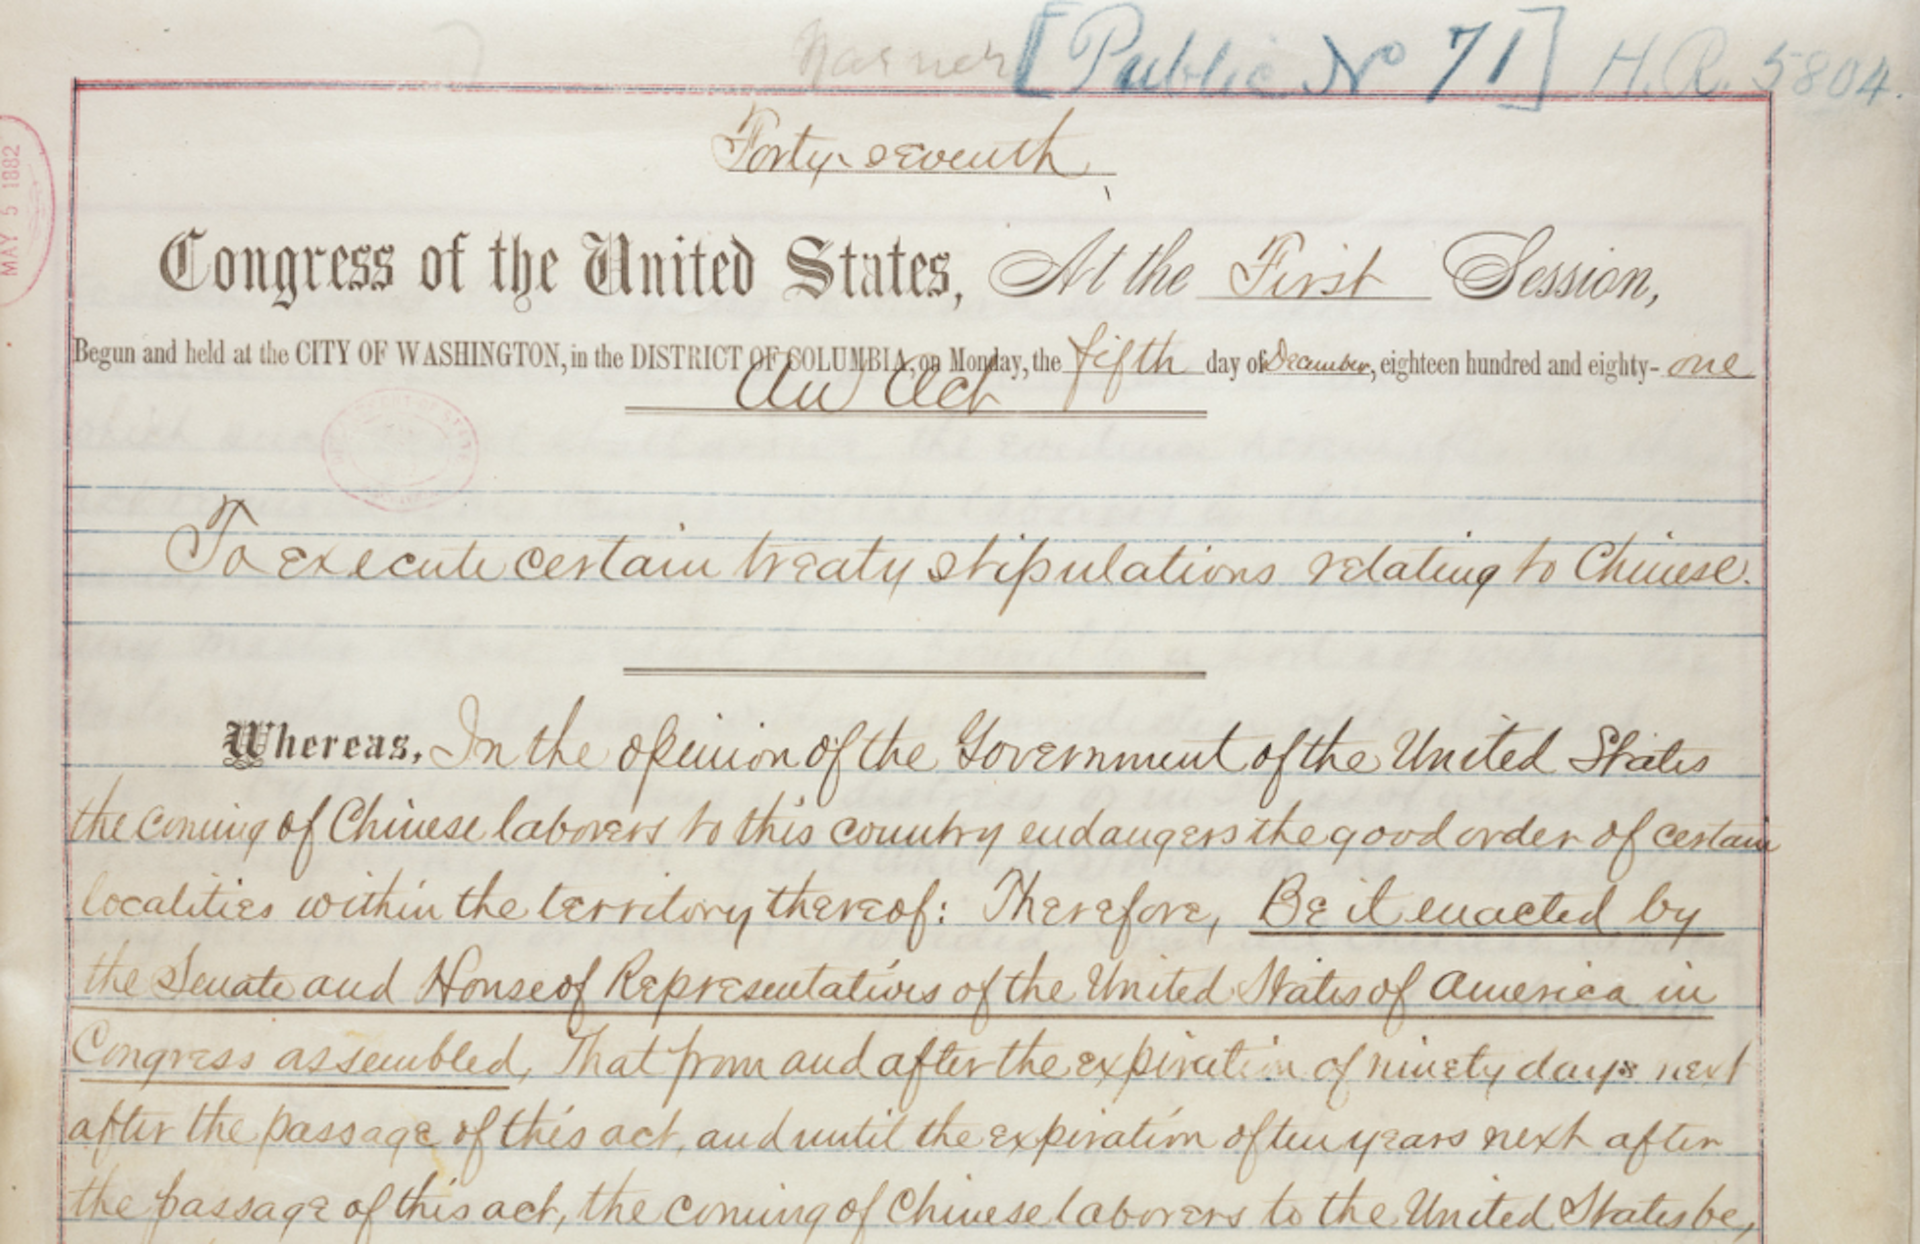 [Public No 71] H.R. 5804.
Forty-seventh
MAY 5 1882
Congress of the United States, At the First Session,
Begun and held at the CITY OF WASHINGTON, in the DISTRICT OF COLUMBIA, on Monday, the fifth day of December, eighteen hundred and eighty-one
An Act
To execute certain treaty stipulations relating to Chinese.
Whereas, In the opinion of the Government of the United States
the coming of Chinese laborers to this country endangers the good order of certain
localities within the territory thereof: Therefore, Be it enacted by
the Senate and House of Representatives of the United States of America in
Congress assembled, That from and after the expiration of ninety days next
after the passage of this act, and until the expiration of ten years next after
the passage of this act, the coming of Chinese laborers to the United States be,